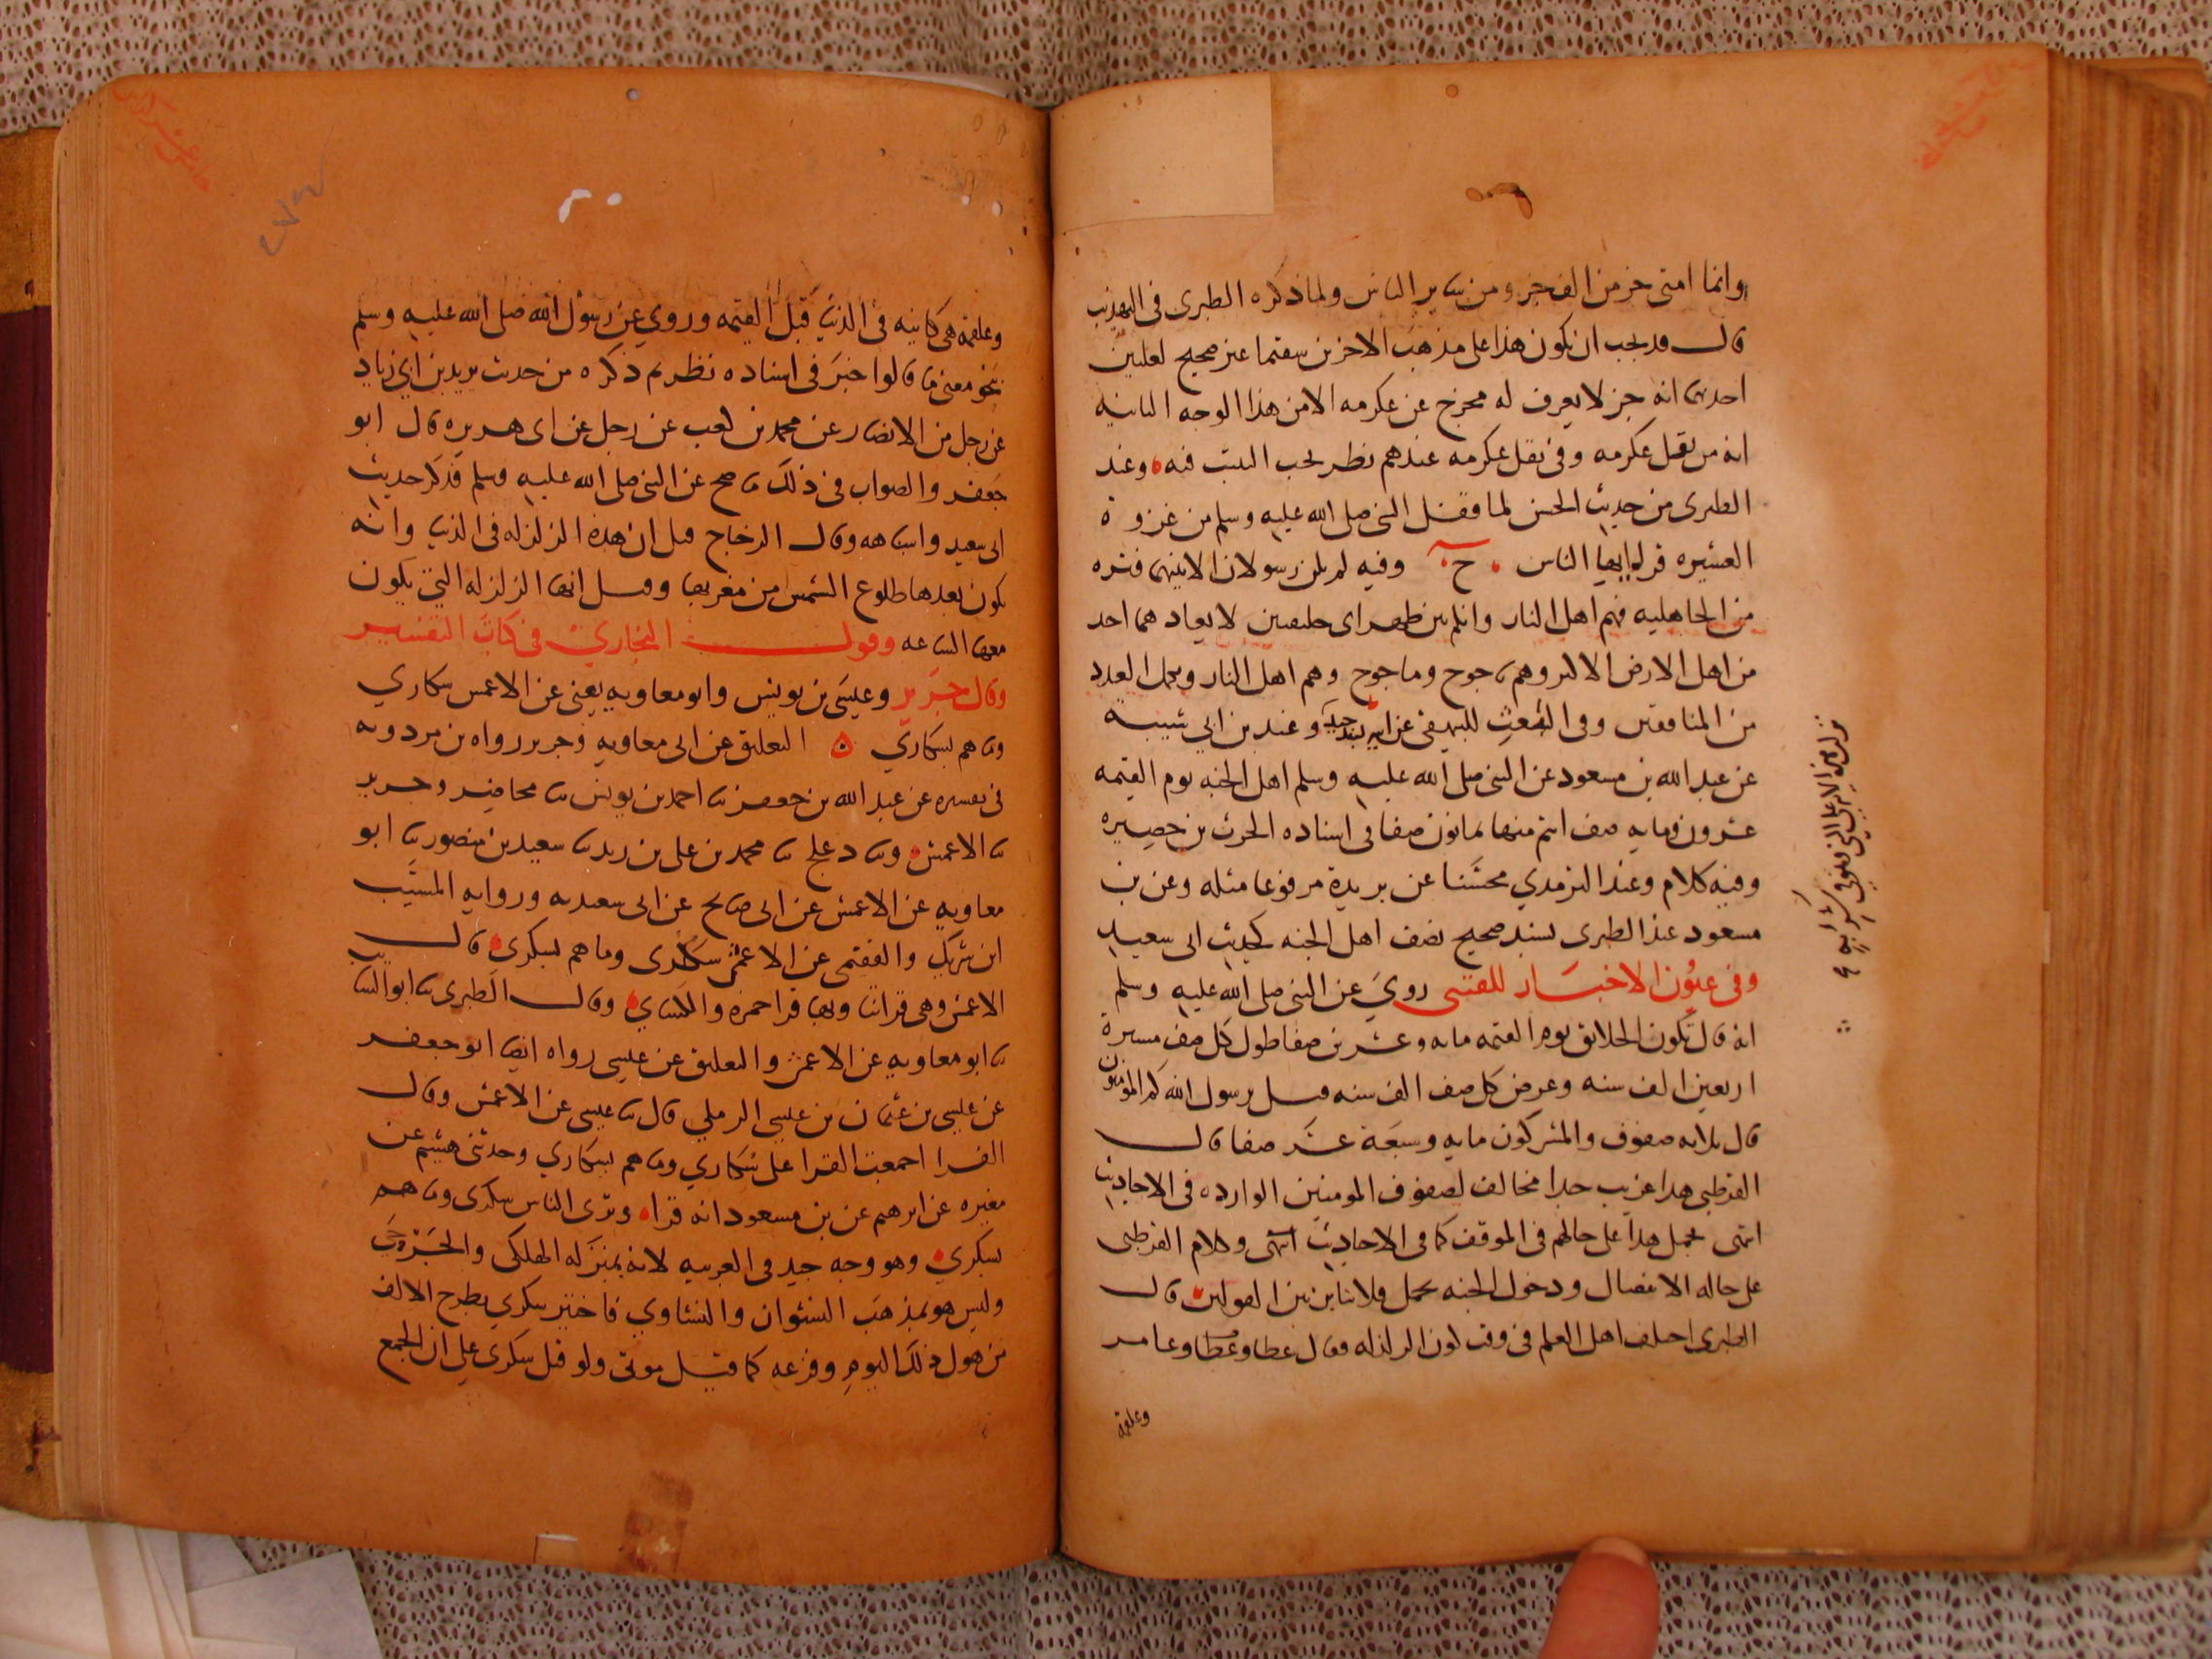 وانما امتى جز من الف جز ومن ساير الناس ولما ذكره الطبرى فى التهذيب
قال قد يجب ان يكون هذا على مذهب الاخرين سقيما غير صحيح لعلتين
احديهما انه خبر لا يعرف له مخرج عن عكرمه الا من هذا الوجه الثانيه
انه من نقل عكرمه وفى نقل عكرمه عندهم نظر يجب التثبت فيه وعند
الطبرى من حديث الحسن لما قفل النبى صلى الله عليه وسلم من غزوة
العشيره قرا يا ايها الناس ح وفيه لم يكن رسولان الا بينهما فتره
من الجاهليه فهم اهل النار وانكم بين ظهراى خليقتين لا يعادهما احد
من اهل الارض الا كثروهم ياجوج وماجوج وهم اهل النار ويكمل العدد
من المنافقين وفى الشعب للبيهقى عن وعند بن ابي شيبة
عن عبد الله بن مسعود عن النبى صلى الله عليه وسلم اهل الجنه يوم القيمه
عشرون ومايه صف انتم منها ثمانون صفا فى اسناده الحرث بن حصيره
وفيه كلام وعند الترمدي محسنا عن بريدة مرفوعا مثله وعن بن
مسعود عند الطبرى بسند صحيح نصف اهل الجنه كحديث ابى سعيد
وفى عيون الاخبار للقتبى روي عن النبى صلى الله عليه وسلم
انه قال تكون الخلائق يوم القيمه مايه وعشرين صفا طول كل صف مسيرة
اربعين الف سنه وعرض كل صف الف سنه قيل يرسول الله كم المومنون
قال ثلاثه صفوف والمشركون مايه وسبعة عشر صفا قال
القرطبى هدا غريب جدا مخالف لصفوف المومنين الوارده فى الاحاديث
انتهى يحمل هدا على حالهم فى الموقف كما فى الاحاديث انتهى وكلام القرطبى
على حاله الانفصال ودخول الجنه يحمل فلا تناين بين القولين قال
الطبرى اختلف اهل العلم فى وقت كون الزلزله فقال عطا وعطا وعامر
وعلقمة
وعلقمة هى كاينه فى الدنيا قبل القيمه وروي عن رسول الله صلى الله عليه وسلم
بنحو معنى ما قالوا خبر فى اسناده نظر ثم ذكره من حديث يزيد بن ابي زياد
عن رجل من الانصار عن محمد بن كعب عن رجل عن ابى هريره قال ابو
جعفر والصواب فى ذلك ما صح عن النبى صلى الله عليه وسلم فذكر حديث
ابى سعيد واشباهه وقال الزجاج قيل ان هذه الزلزله فى الدنيا وانه
يكون بعدها طلوع الشمس من مغربها وقيل انها الزلزله التى يكون
معها الساعه وقول البخاري فى كتاب التفسير
وقال جرير وعيسى بن يونس وابو معاويه يعنى عن الاعمش سكاري
وما هم بسكاري التعليق عن ابى معاويه وجرير رواه بن مردويه
فى تفسيره عن عبد الله بن جعفر ثنا احمد بن يونس ثنا محاضر وجرير
ثنا الاعمش وثنا دعلج ثنا محمد بن على بن زيد ثنا سعيد بن منصور ثنا ابو
معاويه عن الاعمش عن ابى صالح عن ابى سعيد به وروايه المسيب
ابن شريك والفقمى عن الاعمش سكرى وما هم بسكرى قال
الاعمش وهى قراتنا وبها قرا حمزه والكسائي وقال الطبرى ثنا ابو السائب
ثنا ابو معاويه عن الاعمش والتعليق عن عيسى رواه ايضا ابو جعفر
عن عيسى بن عثمان بن عيسى الرملي قال ثنا عيسى عن الاعمش وقال
الفرا اجمعت القرا على سكاري وما هم بسكاري وحدثنى هشيم عن
مغيره عن ابرهيم عن بن مسعود انه قرا وترى الناس سكرى وما هم
بسكري وهو وجه جيد فى العربيه لانه بمنزله الهلكى والجرحى
وليس هو بمذهب النشوان والنشاوي فاختير سكري بطرح الالف
من هول ذلك اليوم وفزعه كما قيل موتى ولو قيل سكرى على ان الجمع